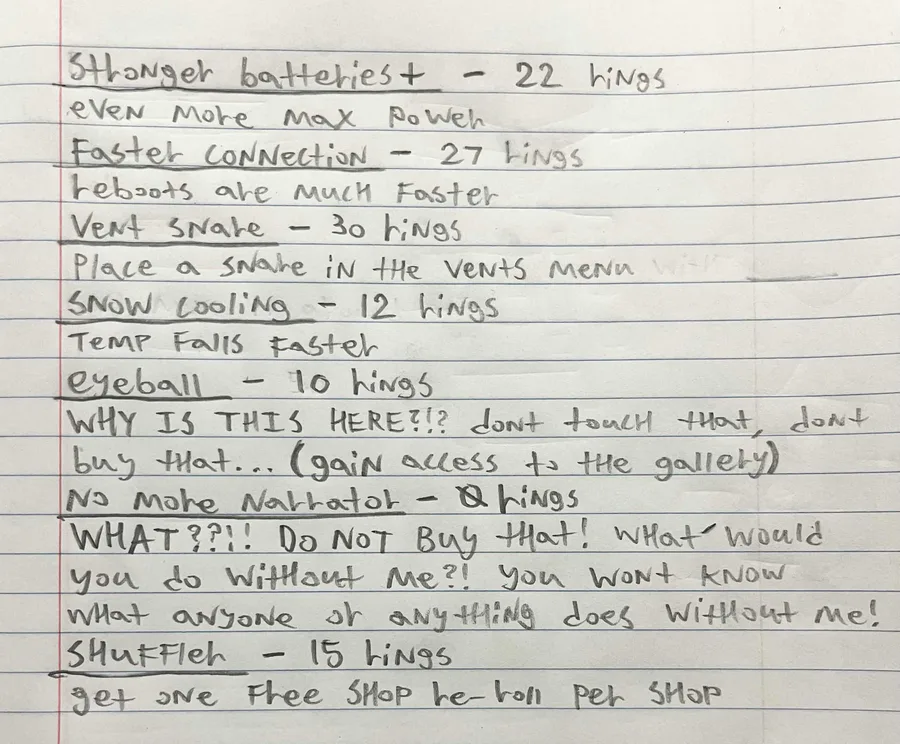 Stronger batteries+ - 22 rings
even more max power
Faster connection - 27 rings
reboots are much faster
Vent snare - 30 rings
Place a snare in the vents menu
Snow cooling - 12 rings
Temp falls faster
eyeball - 10 rings
WHY IS THIS HERE?!? dont touch that, dont
buy that... (gain access to the gallery)
No more Narrator - 0 rings
WHAT??!! DO NOT BUY tHAt! WHat would
you do without me?! you wont know
what anyone or anything does without me!
SHuFFler - 15 rings
get one free SHOP re-roll per SHOP